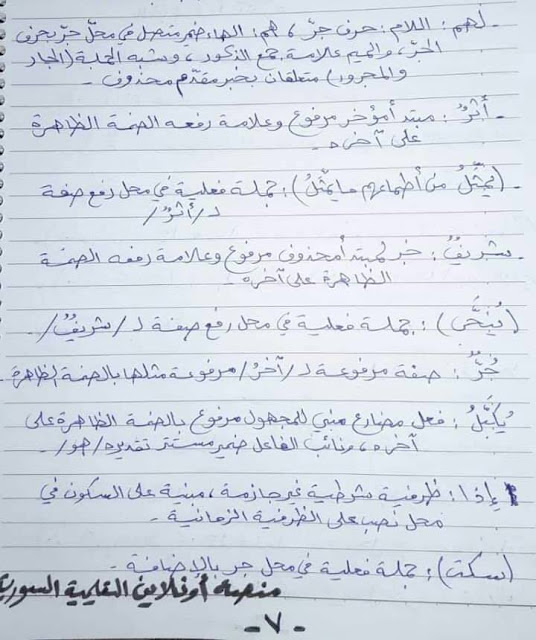 - لهم: اللام: حرف جرّ، هم: الهاء ضمير متصل في محلّ جرّ بحرف
الجرّ، والميم علامة جمع الذكور، وشبه الجملة (الجار
والمجرور) متعلقان بخبر مقدّم محذوف.
- أثرٌ: مبتدأ مؤخر مرفوع وعلامة رفعه الضمة الظاهرة
على آخره.
- (يمثّلُ من أطماعهم ما يمثّلُ): جملة فعلية في محل رفع صفة
لـ /أثرٌ/
- شريفٌ: خبر لمبتدأ محذوف مرفوع وعلامة رفعه الضمة
الظاهرة على آخره.
(يُنحَّى): جملة فعلية في محل رفع صفة لـ /شريفٌ/.
حُرٌّ: صفة مرفوعة لـ /آخرُ/ مرفوعة مثلها بالضمة الظاهرة.
يُكبَّلُ: فعل مضارع مبني للمجهول مرفوع بالضمة الظاهرة على
آخره، ونائب الفاعل ضمير مستتر تقديره /هو/.
إذا: ظرفية شرطية غير جازمة، مبنية على السكون في
محل نصب على الظرفية الزمانية.
(سكت): جملة فعلية في محل جر بالإضافة.
منصة أونلاين التعليمية السورية
- ٧ -